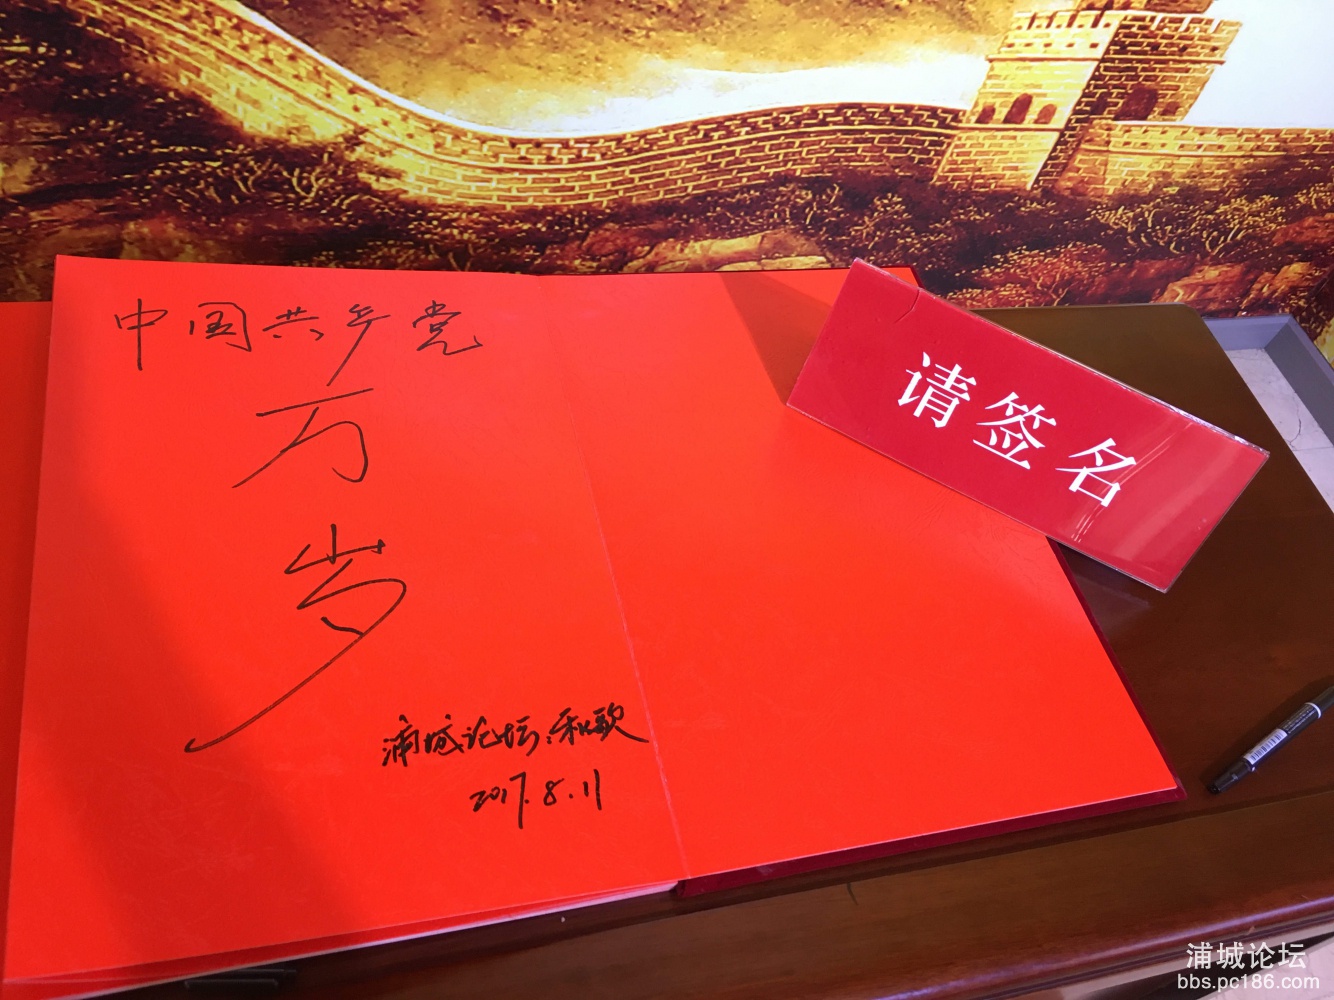 中国共产党
万
岁
浦城论坛:秋歌
2017.8.11
请签名
浦城论坛
bbs.pc186.com